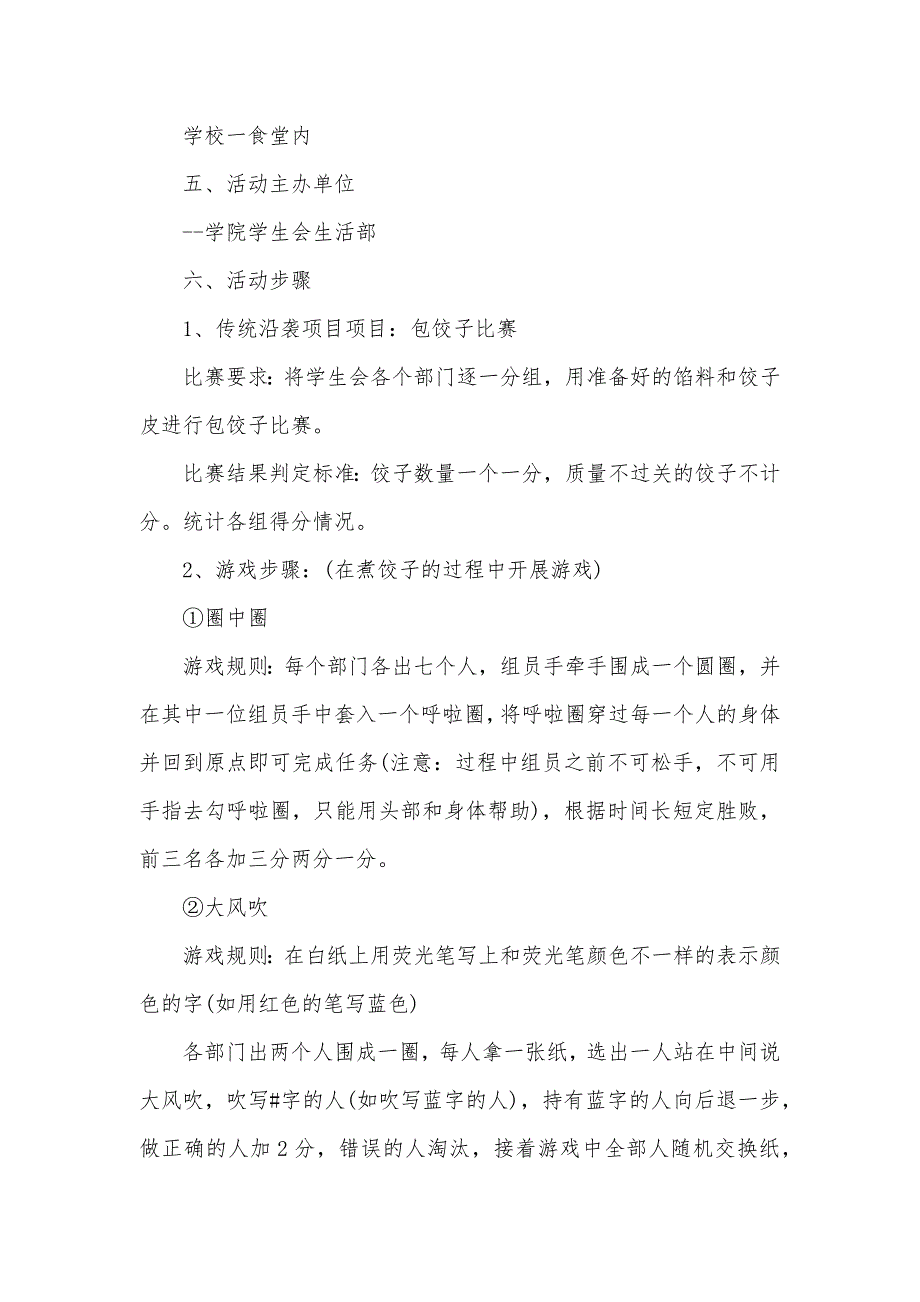 学校一食堂内
五、活动主办单位
--学院学生会生活部
六、活动步骤
1、传统沿袭项目项目：包饺子比赛
比赛要求：将学生会各个部门逐一分组，用准备好的馅料和饺子
皮进行包饺子比赛。
比赛结果判定标准：饺子数量一个一分，质量不过关的饺子不计
分。统计各组得分情况。
2、游戏步骤：(在煮饺子的过程中开展游戏)
①圈中圈
游戏规则：每个部门各出七个人，组员手牵手围成一个圆圈，并
在其中一位组员手中套入一个呼啦圈，将呼啦圈穿过每一个人的身体
并回到原点即可完成任务(注意：过程中组员之前不可松手，不可用
手指去勾呼啦圈，只能用头部和身体帮助)，根据时间长短定胜败，
前三名各加三分两分一分。
②大风吹
游戏规则：在白纸上用荧光笔写上和荧光笔颜色不一样的表示颜
色的字(如用红色的笔写蓝色)
各部门出两个人围成一圈，每人拿一张纸，选出一人站在中间说
大风吹，吹写#字的人(如吹写蓝字的人)，持有蓝字的人向后退一步，
做正确的人加 2 分，错误的人淘汰，接着游戏中全部人随机交换纸，